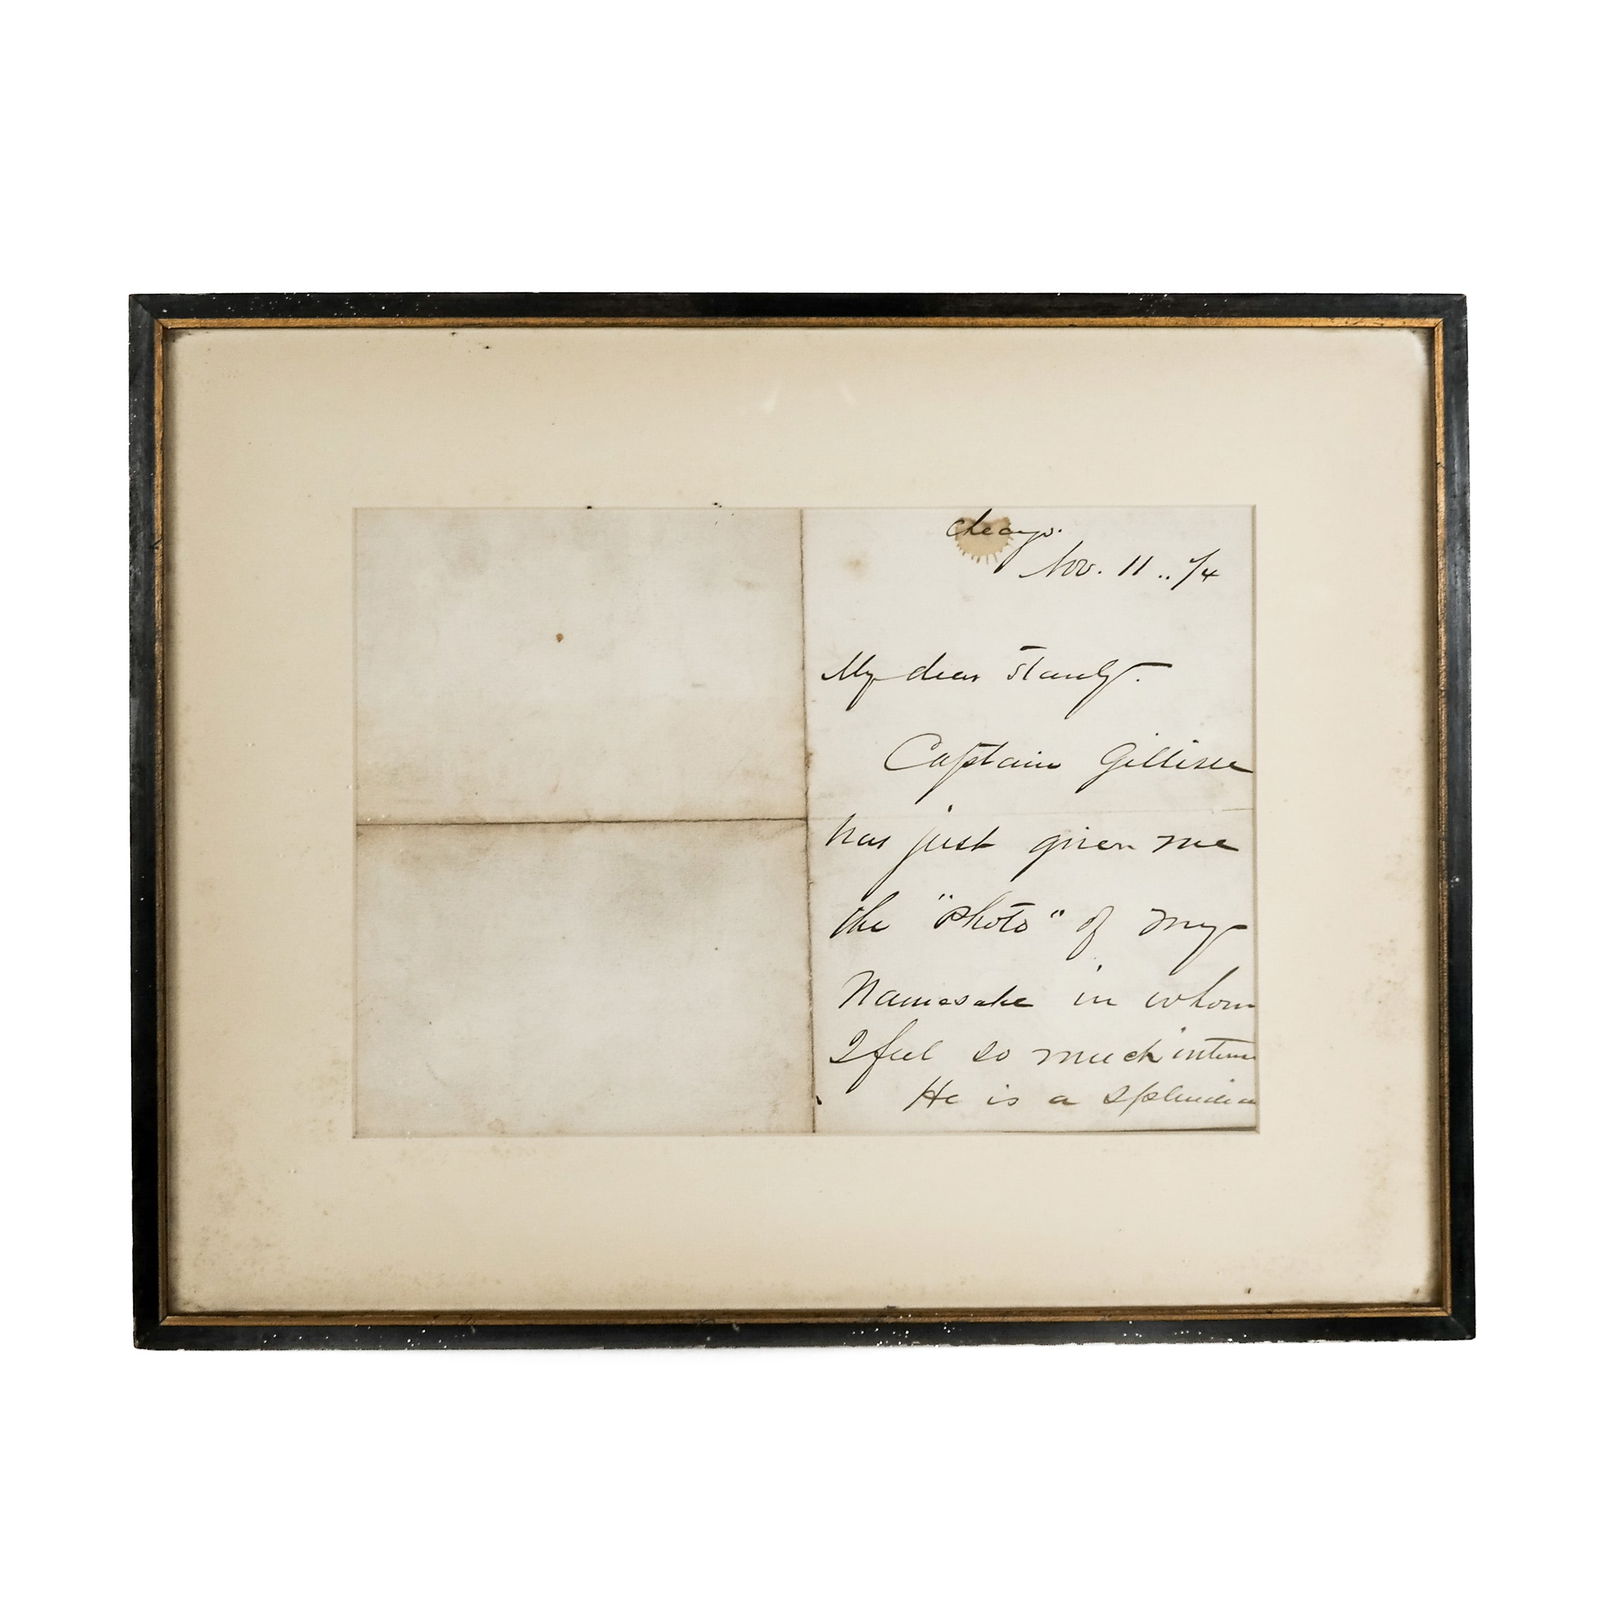 Chicago.
Nov. 11 .. /4
My dear Stanly.
Captain Gillise
has just given me
the "Photo" of my
Namesake in whom
I feel so much
He is a